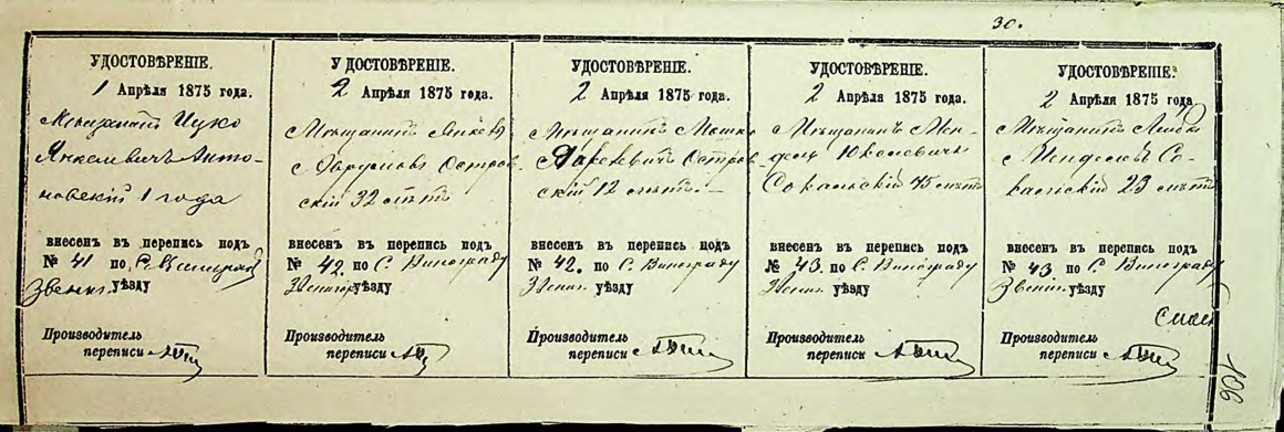 30.
УДОСТОВѢРЕНІЕ.
1 Апрѣля 1875 года.
Мещанинъ Ицко
Янкелевичъ Анто-
новскій 1 года
внесенъ въ перепись подъ
№ 41 по С. Винограду
Звениг. уѣзду
Производитель
переписи
УДОСТОВѢРЕНІЕ.
2 Апрѣля 1875 года.
Мѣщанинъ
Остров-
скій 32 лѣтъ
внесенъ въ перепись подъ
№ 42. по С. Винограду
Звенигор. уѣзду
Производитель
переписи
УДОСТОВѢРЕНІЕ.
2 Апрѣля 1875 года.
Мѣщанинъ Мошко
Остров-
скій 12 лѣтъ.
внесенъ въ перепись подъ
№ 42. по С. Винограду
Звениг. уѣзду
Производитель
переписи
УДОСТОВѢРЕНІЕ.
2 Апрѣля 1875 года.
Мѣщанинъ Мен-
дель
Сокальскій 45 лѣтъ
внесенъ въ перепись подъ
№ 43. по С. Винограду
Звениг. уѣзду
Производитель
переписи
УДОСТОВѢРЕНІЕ.
2 Апрѣля 1875 года
Мѣщанинъ Лейба
Менделевъ Со-
кальскій 23 лѣтъ
внесенъ въ перепись подъ
№ 43 по С. Винограду
Звениг. уѣзду
Производитель
переписи
106